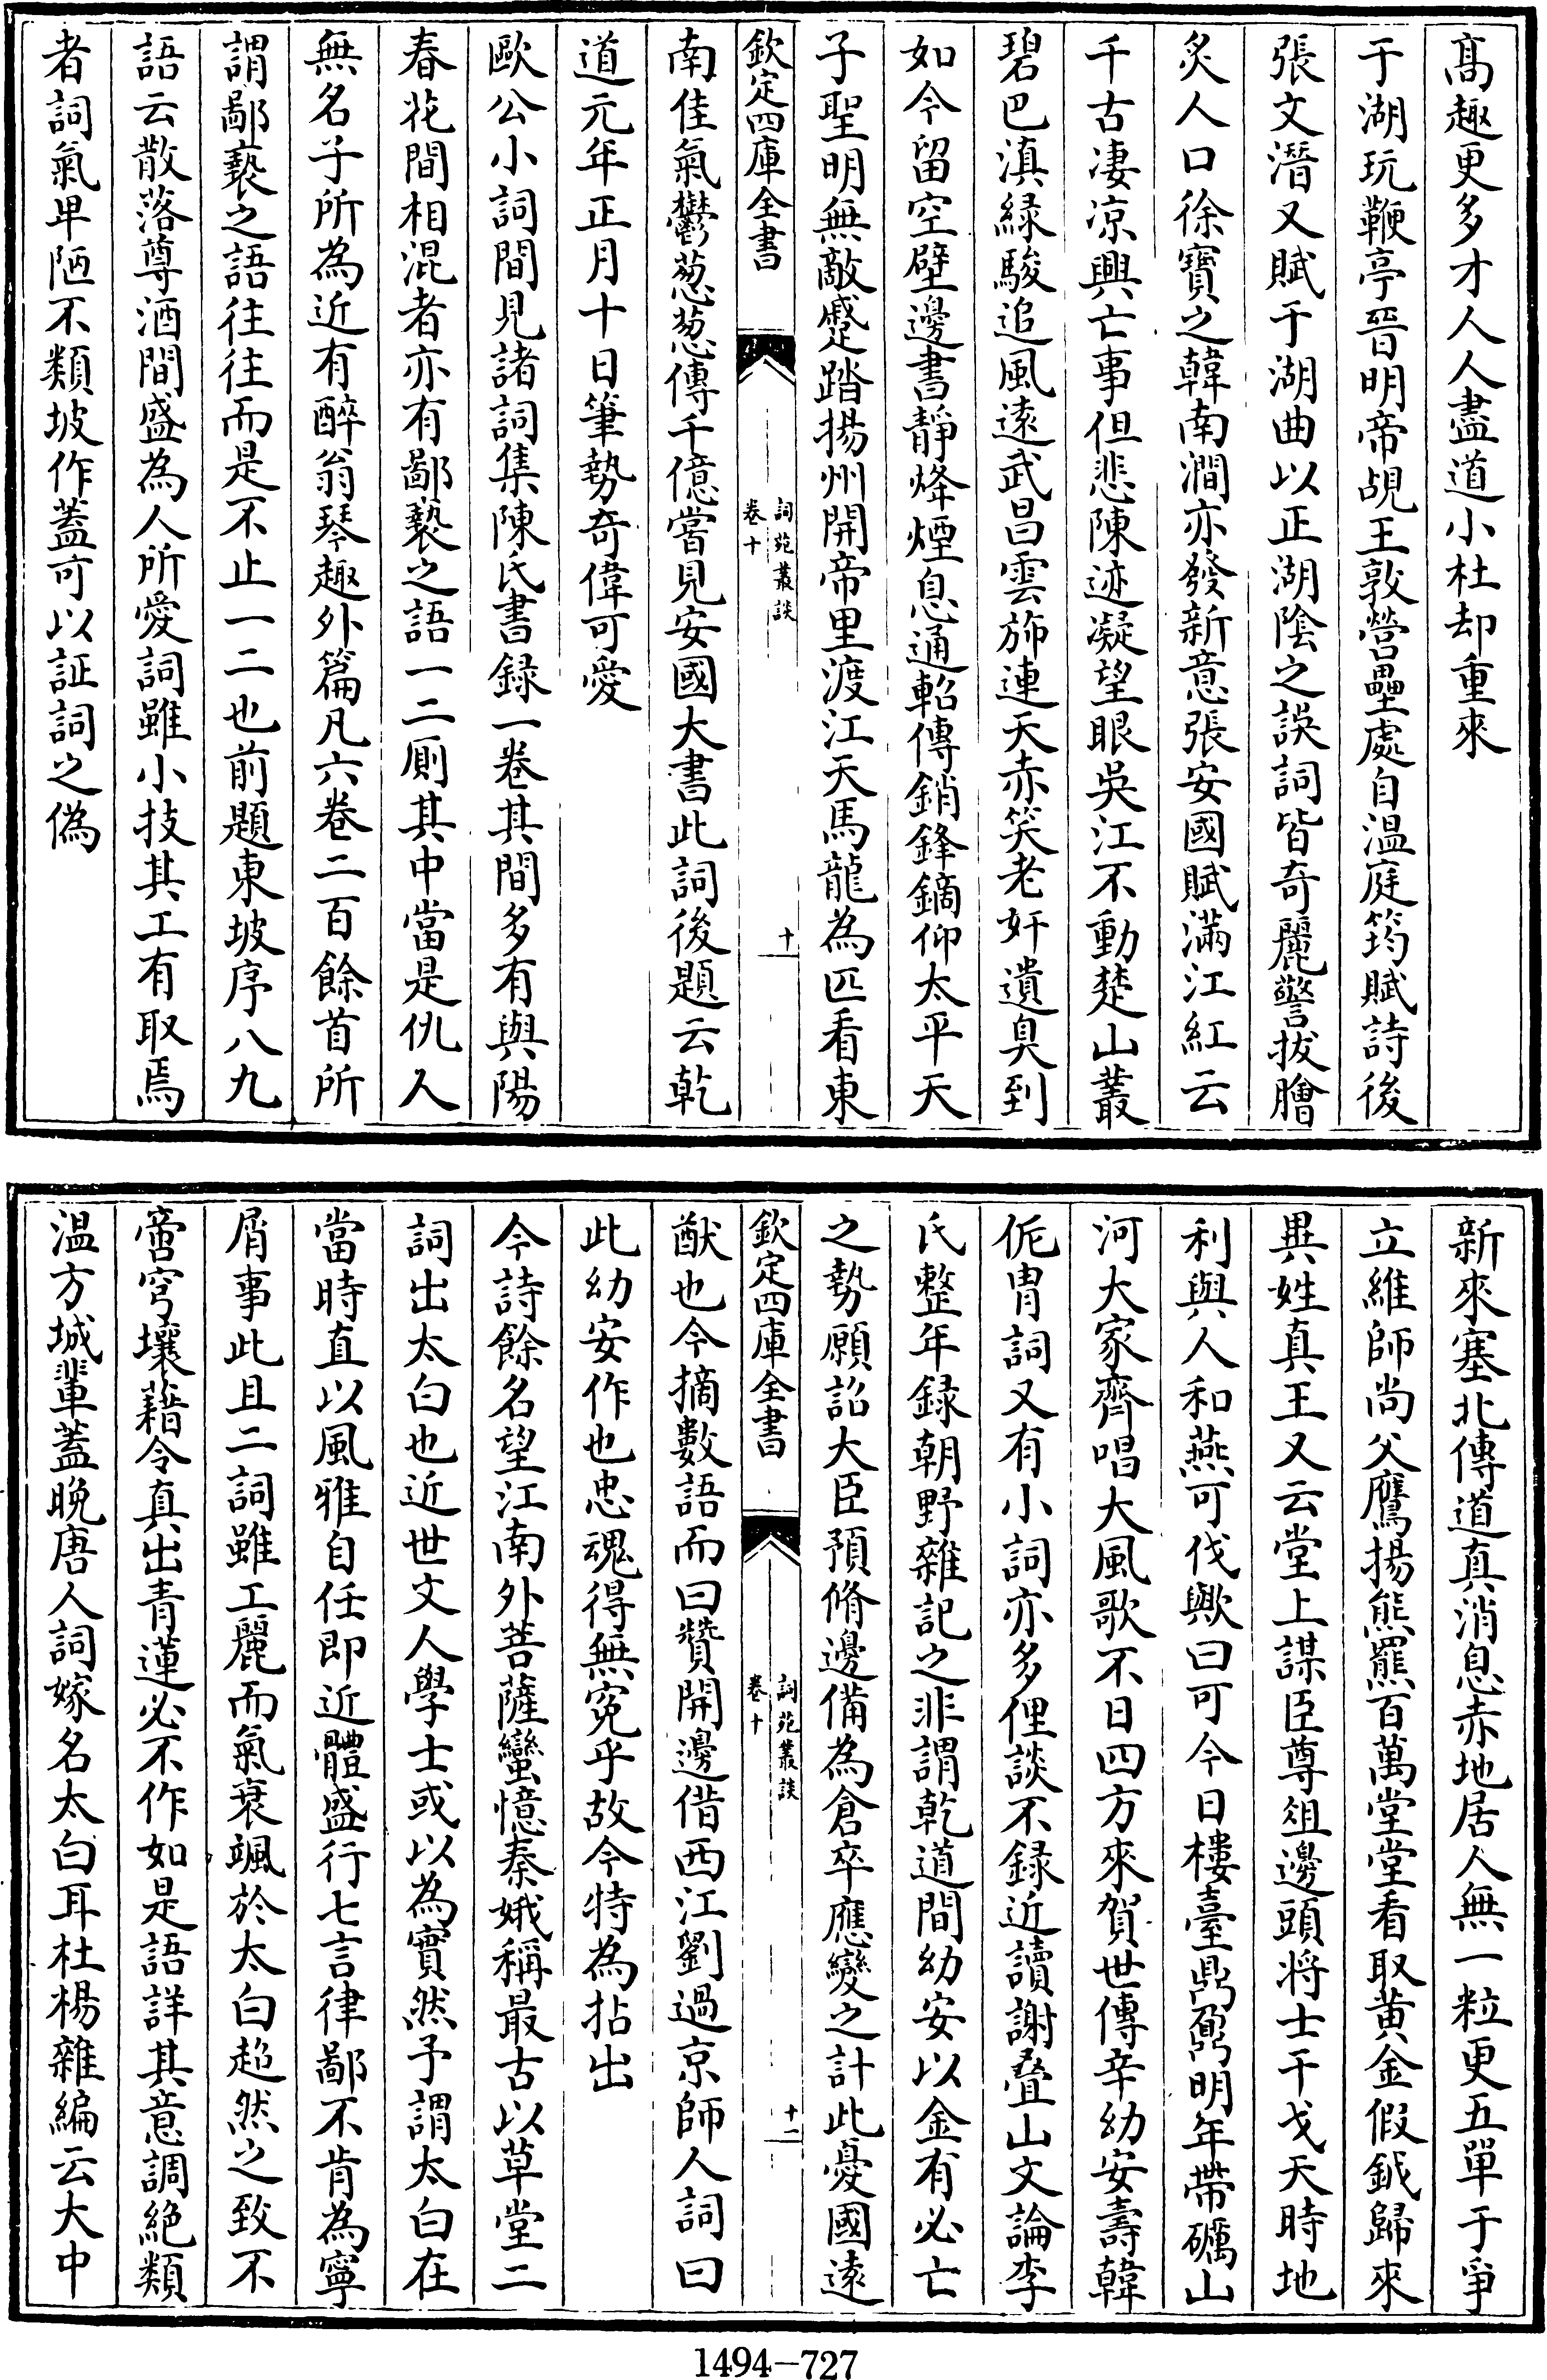 髙趣更多才人人盡道小杜却重來
于湖玩鞭亭晉明帝覘王敦營壘處自温庭筠賦詩後
張文潛又賦于湖曲以正湖陰之誤詞皆奇麗警拔膾
炙人口徐寶之韓南澗亦發新意張安國賦滿江紅云
千古凄凉興亡事但悲陳迹凝望眼吳江不動楚山叢
碧巴滇緑駿追風逺武昌雲斾連天赤笑老奸遺臭到
如今留空壁邊書靜烽煙息通軺傳銷鋒鏑仰太平天
子聖明無敵蹙踏揚州開帝里渡江天馬龍為匹看東
欽定四庫全書
詞苑叢談
卷十
十
南佳氣鬱葱葱傳千億嘗見安國大書此詞後題云乾
道元年正月十日筆勢奇偉可愛
歐公小詞間見諸詞集陳氏書録一卷其間多有與陽
春花間相混者亦有鄙褻之語一二厠其中當是仇人
無名子所為近有醉翁琴趣外篇凡六卷二百餘首所
謂鄙褻之語往往而是不止一二也前題東坡序八九
語云散落尊酒間盛為人所愛詞雖小技其工有取焉
者詞氣卑陋不類坡作蓋可以証詞之偽
新來塞北傳道真消息赤地居人無一粒更五單于爭
立維師尚父鷹揚熊羆百萬堂堂看取黄金假鉞歸來
異姓真王又云堂上謀臣尊俎邊頭将士干戈天時地
利與人和燕可伐歟曰可今日樓臺鼎鼐明年帶礪山
河大家齊唱大風歌不日四方來賀世傳辛幼安壽韓
侂胄詞又有小詞亦多俚談不録近讀謝疊山文論李
氏繫年録朝野雜記之非謂乾道間幼安以金有必亡
之勢願詔大臣預脩邊備為倉卒應變之計此憂國逺
欽定四庫全書
詞苑叢談
卷十
十二
猷也今摘數語而曰贊開邊借西江劉過京師人詞曰
此幼安作也忠魂得無寃乎故今特為拈出
今詩餘名望江南外菩薩蠻憶秦娥稱最古以草堂二
詞出太白也近世文人學士或以為實然予謂太白在
當時直以風雅自任即近體盛行七言律鄙不肯為寧
屑事此且二詞雖工麗而氣衰颯於太白超然之致不
啻穹壤藉令真出青蓮必不作如是語詳其意調絶類
温方城輩蓋晚唐人詞嫁名太白耳杜楊雜編云大中
1494—727